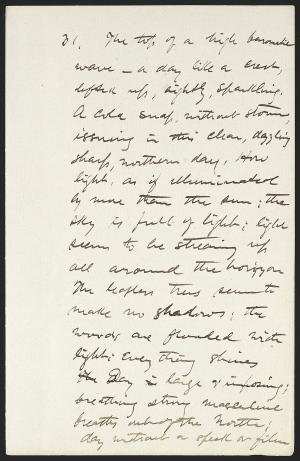 31. The top of a high barometric
wave — a day like a crest,
lifted up, sightly, sparkling.
A cold snap, without storm,
issuing in this clear, dazzling
sharp, northern day. How
light, as if illuminated
by more than the sun; the
sky is full of light; light
seems to be streaming up
all around the horizon
The leafless trees seem to
make no shadows; the
woods are flooded with
light: Everything shines;
Day is large & imposing;
breathing strong masculine
breaths out of the North;
day without a speck or film